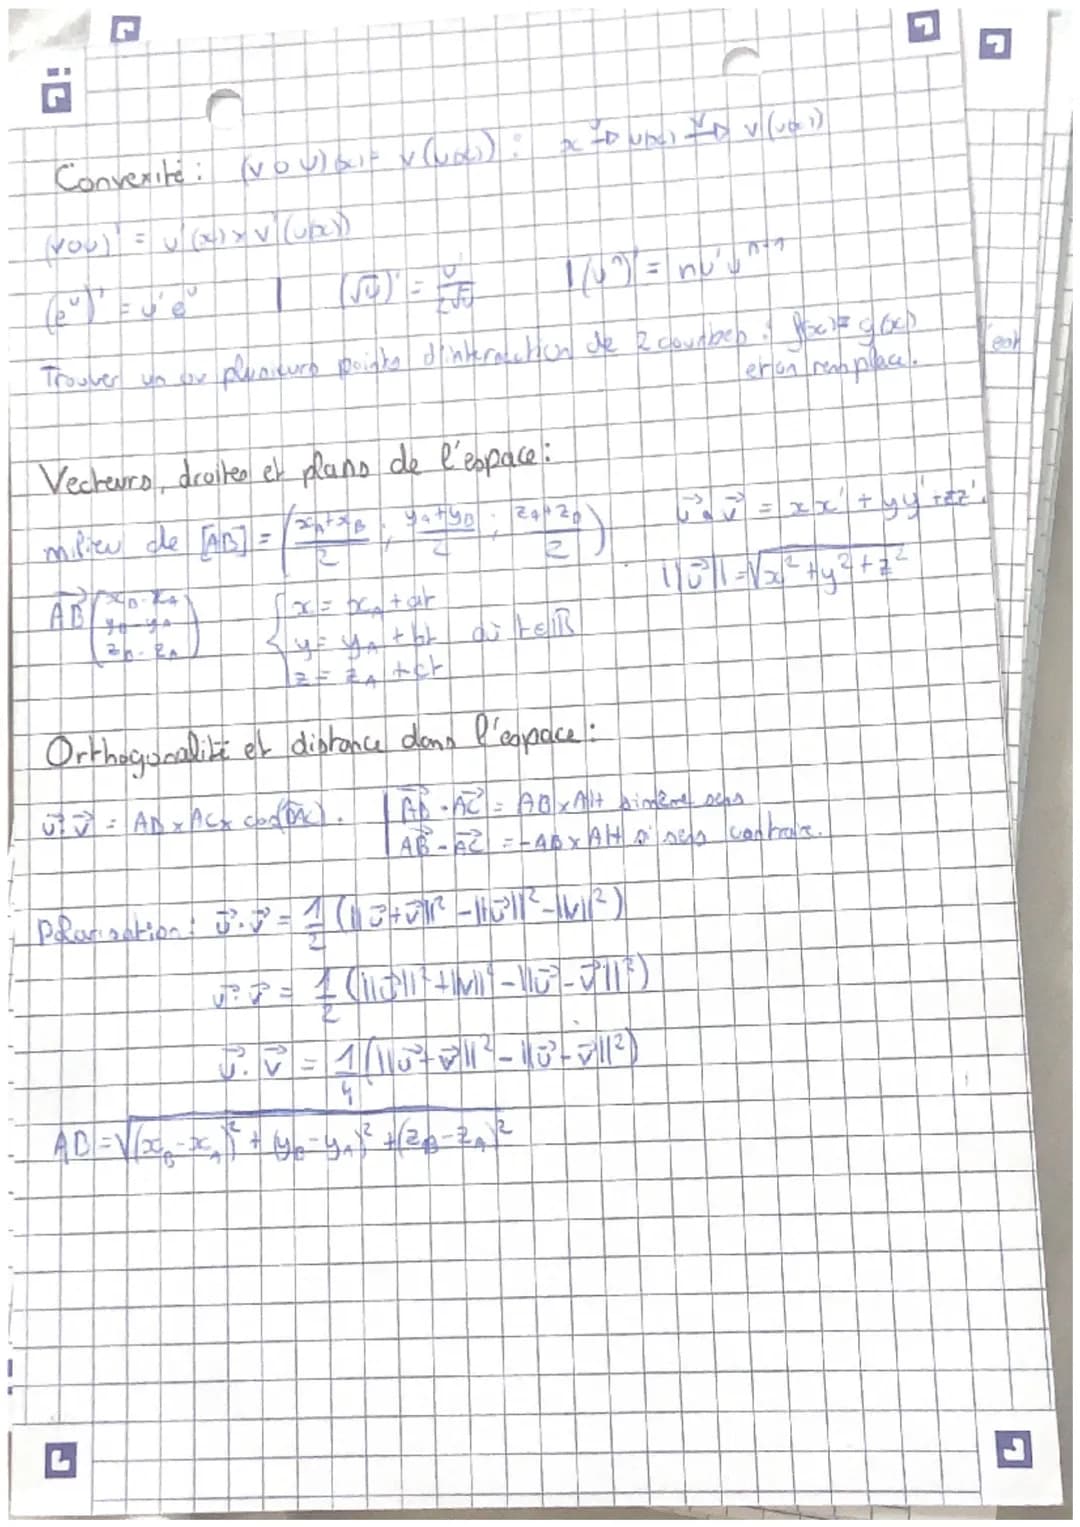 Convexité : (v o u)(x) = v(u(x)) : x →ᵘ u(x) →ᵛ v(u(x))
(v o u)' = u'(x) × v'(u(x))
(eᵘ)' = u'eᵘ | (√u)' = u'/2√u | (uⁿ)' = nu'uⁿ⁻¹
Trouver un ou plusieurs points d'intersection de 2 courbes : f(x) = g(x)
et on remplace.
Vecteurs, droites et plans de l'espace :
milieu de [AB] = ((x_A + x_B)/2 ; (y_A + y_B)/2 ; (z_A + z_B)/2) u⃗ . v⃗ = xx' + yy' + zz'
||u⃗|| = √(x² + y² + z²)
AB⃗ (x_B - x_A
y_B - y_A
z_B - z_A)
{ x = x_A + at
y = y_A + bt où t ∈ ℝ
z = z_A + ct
Orthogonalité et distance dans l'espace :
u⃗ . v⃗ = AB × AC × cos(BAC). | AB⃗ . AC⃗ = AB × AH si même sens
AB⃗ . AC⃗ = - AB × AH si sens contraire.
Polarisation : u⃗ . v⃗ = 1/2 (||u⃗ + v⃗||² - ||u⃗||² - ||v||²)
u⃗ . v⃗ = 1/2 (||u⃗||² + ||v||² - ||u⃗ - v⃗||²)
u⃗ . v⃗ = 1/4 (||u⃗ + v⃗||² - ||u⃗ - v⃗||²)
AB = √((x_B - x_A)² + (y_B - y_A)² + (z_B - z_A)²)